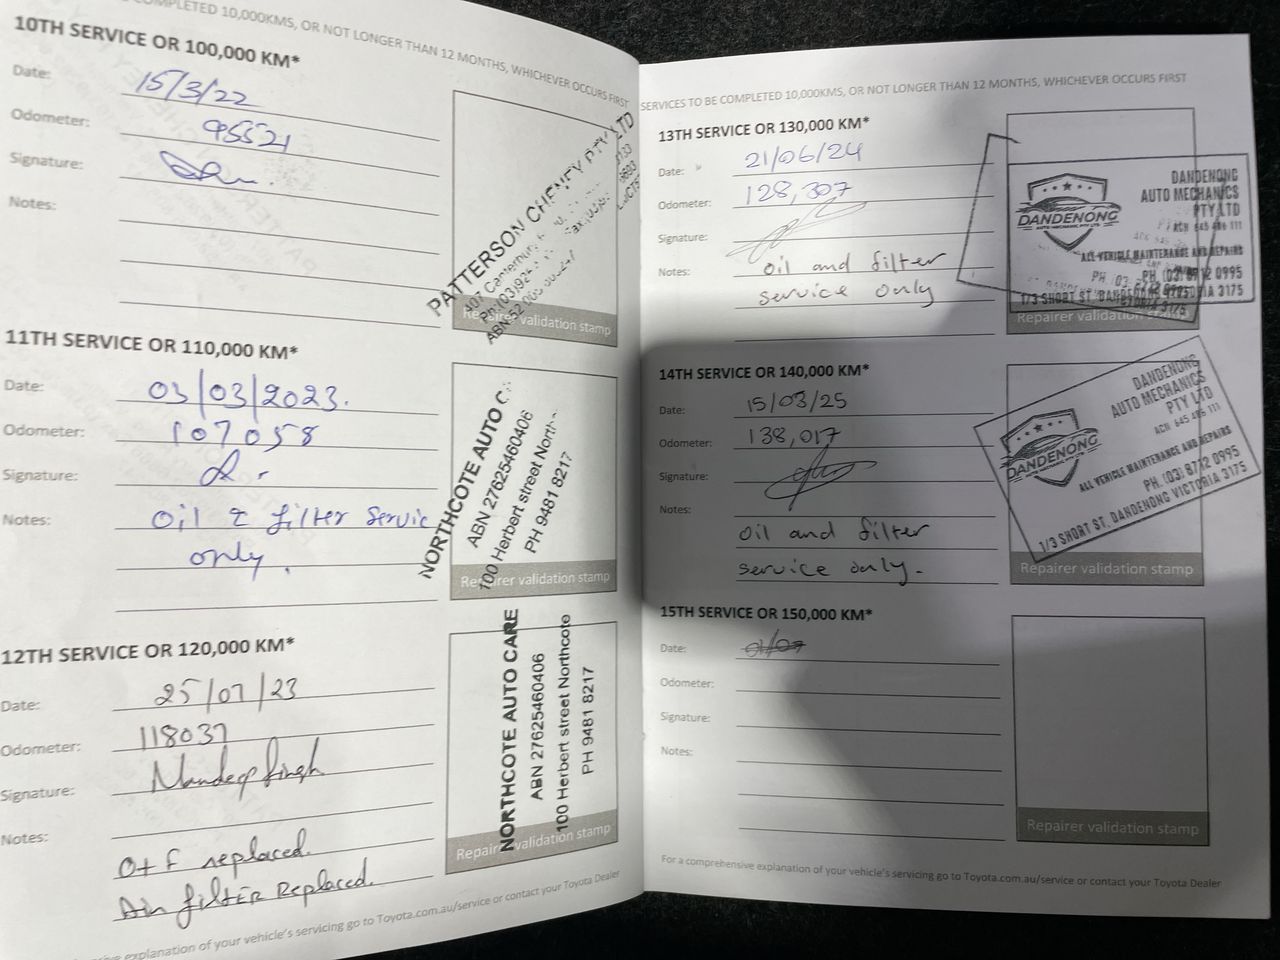 COMPLETED 10,000KMS, OR NOT LONGER THAN 12 MONTHS, WHICHEVER OCCURS FIRST
10TH SERVICE OR 100,000 KM*
Date: 15/3/22
Odometer: 95521
Signature:
Notes:
PATTERSON CHENEY PTY LTD
Repairer validation stamp
11TH SERVICE OR 110,000 KM*
Date: 03/03/2023.
Odometer: 107058
Signature:
Notes: Oil & filter Servic
only.
NORTHCOTE AUTO C
ABN 27625460406
100 Herbert street North
PH 9481 8217
Repairer validation stamp
12TH SERVICE OR 120,000 KM*
Date: 25/07/23
Odometer: 118037
Signature: Mandeep Singh
Notes:
O+F replaced.
Air filter Replaced.
NORTHCOTE AUTO CARE
ABN 27625460406
100 Herbert street Northcote
PH 9481 8217
Repairer validation stamp
explanation of your vehicle's servicing go to Toyota.com.au/service or contact your Toyota Dealer
SERVICES TO BE COMPLETED 10,000KMS, OR NOT LONGER THAN 12 MONTHS, WHICHEVER OCCURS FIRST
13TH SERVICE OR 130,000 KM*
Date: 21/06/24
Odometer: 128,307
Signature:
Notes: oil and filter
service only
DANDENONG
AUTO MECHANICS
PTY LTD
ACN 645 486 111
DANDENONG
AUTO MECHANIC PTY LTD
ALL VEHICLE MAINTENANCE AND REPAIRS
PH. (03) 8712 0995
1/3 SHORT ST. DANDENONG VICTORIA 3175
Repairer validation stamp
14TH SERVICE OR 140,000 KM*
Date: 15/03/25
Odometer: 138,017
Signature:
Notes:
oil and filter
service only.
DANDENONG
AUTO MECHANICS
PTY LTD
ACN 645 486 111
DANDENONG
AUTO MECHANIC PTY LTD
ALL VEHICLE MAINTENANCE AND REPAIRS
PH. (03) 8712 0995
1/3 SHORT ST. DANDENONG VICTORIA 3175
Repairer validation stamp
15TH SERVICE OR 150,000 KM*
Date:
Odometer:
Signature:
Notes:
Repairer validation stamp
For a comprehensive explanation of your vehicle's servicing go to Toyota.com.au/service or contact your Toyota Dealer